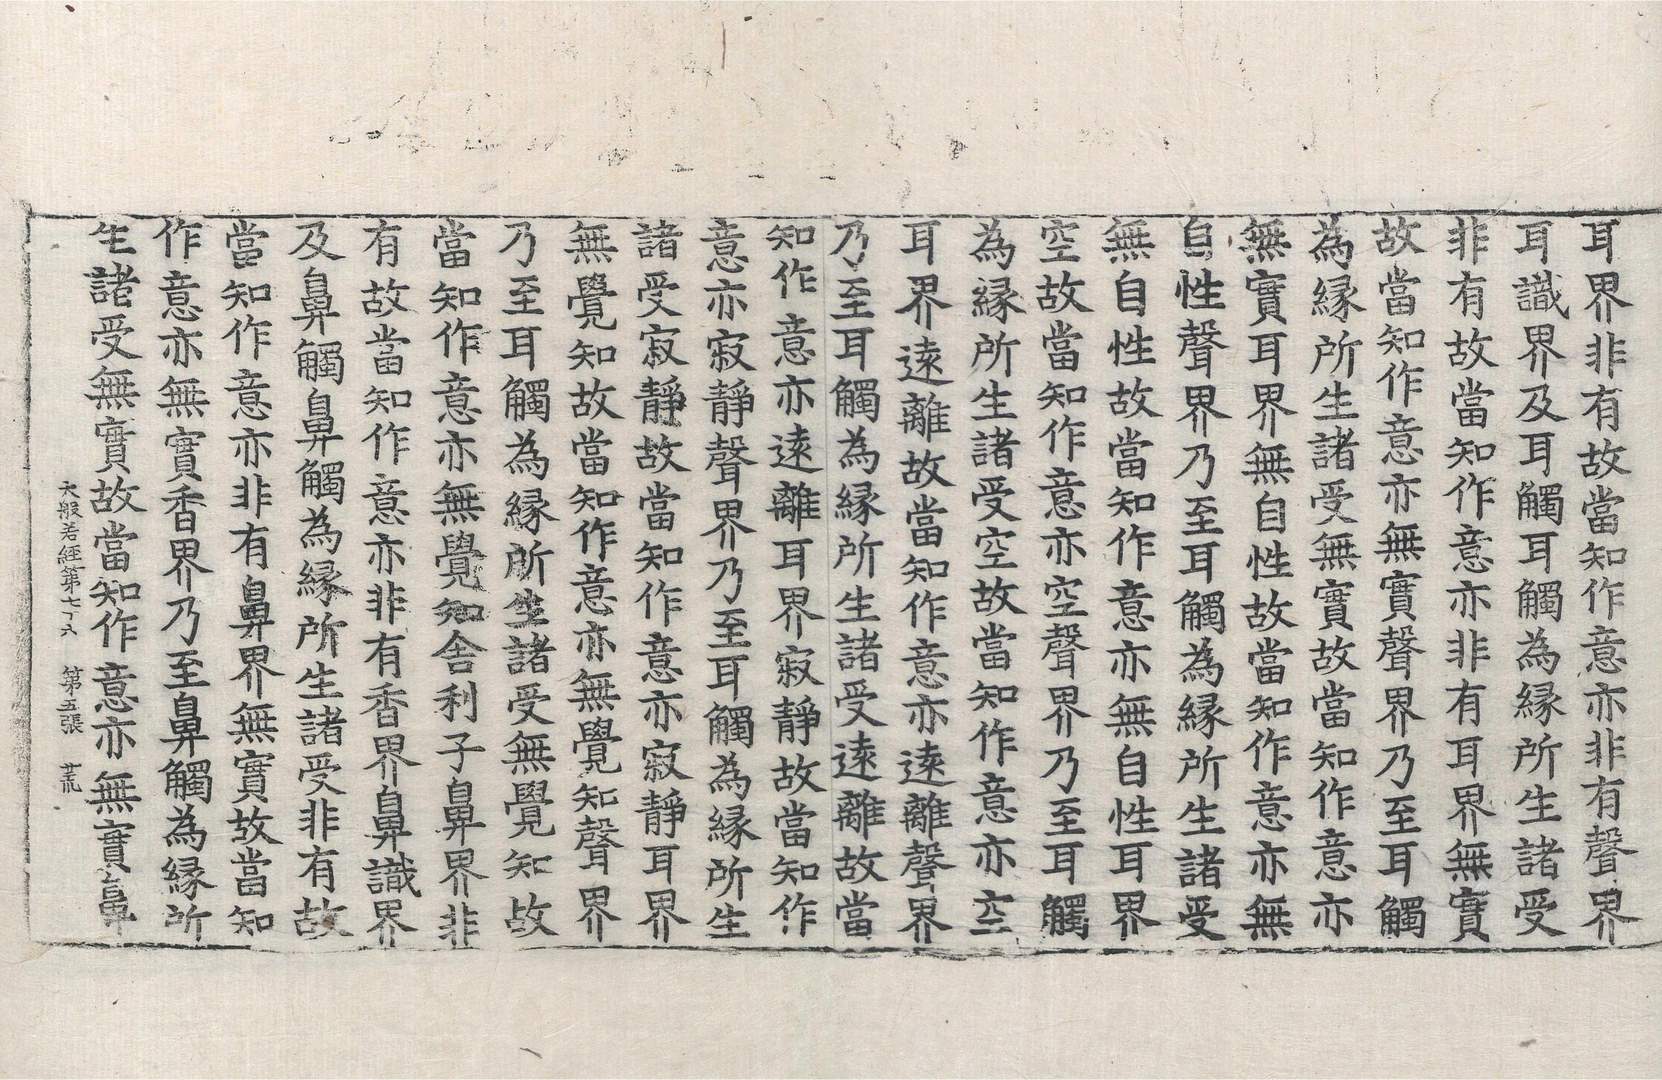 耳界非有故當知作意亦非有聲界
耳識界及耳觸耳觸為縁所生諸受
非有故當知作意亦非有耳界無實
故當知作意亦無實聲界乃至耳觸
為縁所生諸受無實故當知作意亦
無實耳界無自性故當知作意亦無
自性聲界乃至耳觸為縁所生諸受
無自性故當知作意亦無自性耳界
空故當知作意亦空聲界乃至耳觸
為縁所生諸受空故當知作意亦空
耳界遠離故當知作意亦遠離聲界
乃至耳觸為縁所生諸受遠離故當
知作意亦遠離耳界寂靜故當知作
意亦寂靜聲界乃至耳觸為縁所生
諸受寂靜故當知作意亦寂靜耳界
無覺知故當知作意亦無覺知聲界
乃至耳觸為縁所生諸受無覺知故
當知作意亦無覺知舍利子鼻界非
有故當知作意亦非有香界鼻識界
及鼻觸鼻觸為縁所生諸受非有故
當知作意亦非有鼻界無實故當知
作意亦無實香界乃至鼻觸為縁所
生諸受無實故當知作意亦無實鼻
大般若經第七十六 第五張 荒